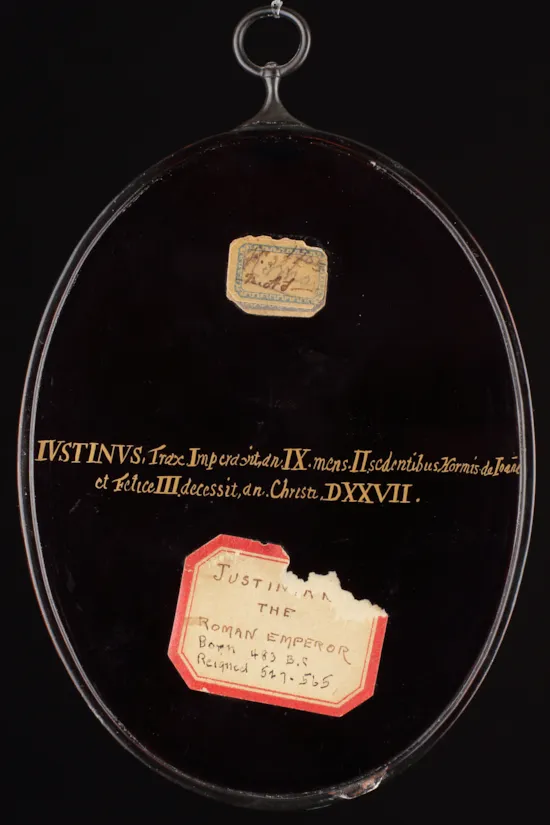 mold
IVSTINVS, Trax Imperavit, an. IX. mens. II, sedentibus Hormisda Ioañe
et Felice III, decessit, an. Christi. DXXVII.
JUSTINIAN
THE
ROMAN EMPEROR
Born 483 B.C
Reigned 527-565